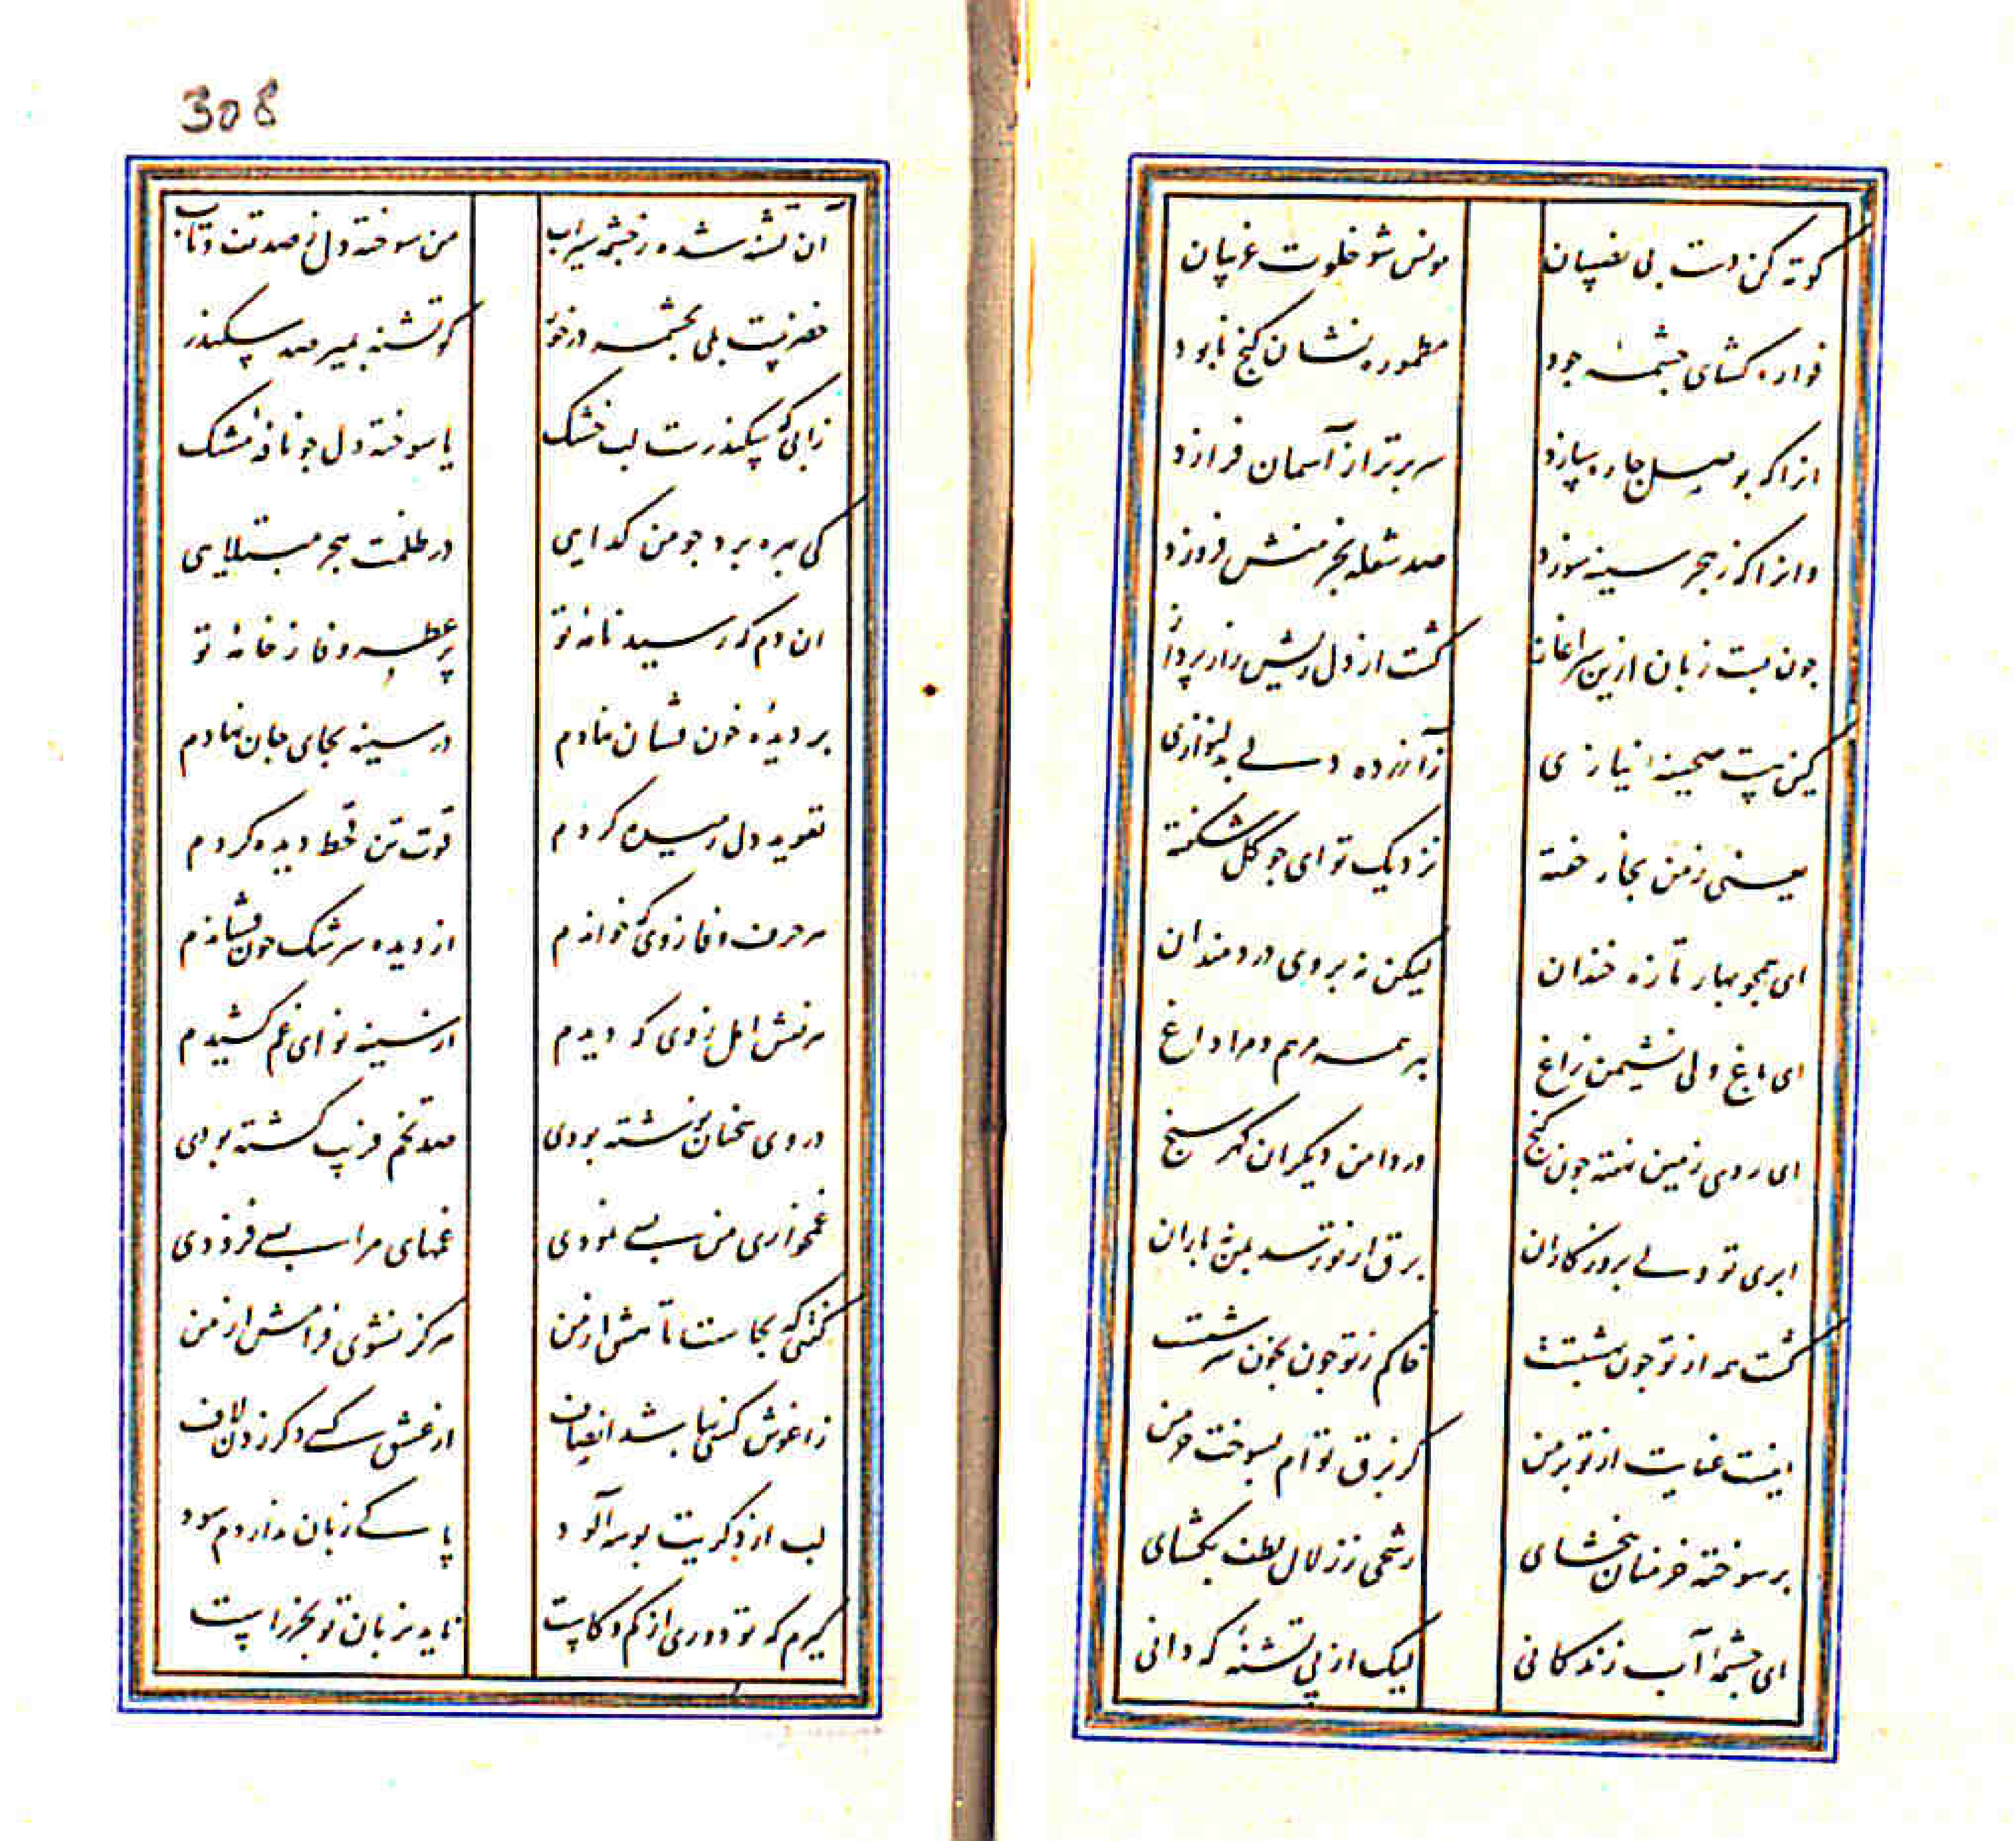 کوته کن دست بی نصیبان مونس شو خلوت غریبان
فواره کشای چشمه جود مطموره نشان کنج نابود
انرا که بوصل چاره سازد سر برتر از آسمان فرازد
وانرا که زهجر سینه سوزد صد شعله بخرمنش فروزد
چون بست زبان ازین سراغاز کشت از دل ریش راز پرداز
کین نیست صحیفه نیازی زآزرده دلی بدلنوازی
یعنی ز من بخار خفته نزدیک تو ای چو کل شکفته
ای همچو بهار تازه خندان لیکن نه بروی دردمندان
ای باغ ولی نشیمن زاغ بر همه مرهم و مرا داغ
ای روی زمین نهفته چون کنج در دامن دیکران کهر سنج
ابری تو ولی بروزکاران برق از تو رسد بمن نه باران
کشت همه از تو چون بهشتست خاکم ز تو چون بخون سرشتست
اینست عنایت از تو بر من کز برق توام بسوخت خرمن
بر سوخته خرمنان ببخشای رشحی ز زلال لطف بکشای
ای چشمه آب زندکانی لیک از پی تشنه که دانی
308
آن تشنه شده ز چشمه سیراب من سوخته دل ز صد تف و تاب
خضریست بلی بچشمه در خور کو تشنه بمیر صد سکندر
زابی که سکندرست لب خشک یا سوخته دل چو نافه مشک
کی بهره برد چو من کدایی در ظلمت هجر مبتلایی
ان دم که رسید نامه تو پر عطر وفا ز خامه تو
بر دیده خون فشان نهادم در سینه بجای جان نهادم
تعوید دل رمیده کردم قوت تن قحط دیده کردم
هر حرف وفا ز وی که خواندم از دیده سرشک خون فشاندم
هر نقش امل ز وی که دیدم از سینه نوای غم کشیدم
در وی سخنان نوشته بودی صد تخم فریب کشته بودی
غمخواری من بسی نمودی غمهای مرا بسی فزودی
کفتی که بجاست تا هشی از من هرکز نشوی فرامش از من
زاغوش کسی نباشد انصاف از عشق کسی دکر زدن لاف
لب از دکریت بوسه آلود با من زبان ندارم سود
کیرم که تو دوری از کم و کاست ناید بزبان تو بجز راست